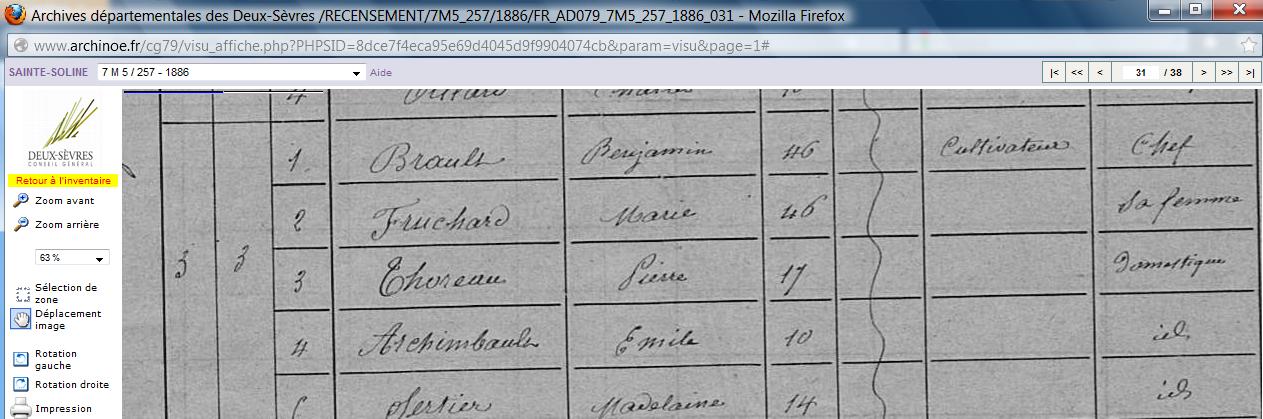 Archives départementales des Deux-Sèvres /RECENSEMENT/7M5_257/1886/FR_AD079_7M5_257_1886_031 - Mozilla Firefox
www.archinoe.fr/cg79/visu_affiche.php?PHPSID=8dce7f4eca95e69d4045d9f9904074cb&param=visu&page=1#
SAINTE-SOLINE 7 M 5 / 257 - 1886 Aide |< << < 31 / 38 > >> >|
DEUX-SÈVRES
CONSEIL GÉNÉRAL
Retour à l'inventaire
Zoom avant
Zoom arrière
63 %
Sélection de
zone
Déplacement
image
Rotation
gauche
Rotation droite
Impression
4
1 Brault Benjamin 46 Cultivateur Chef
2 Fruchard Marie 46 Sa femme
3 3 3 Thoreau Pierre 17 Domestique
4 Archimbault Emile 10 id
Madelaine 14 id